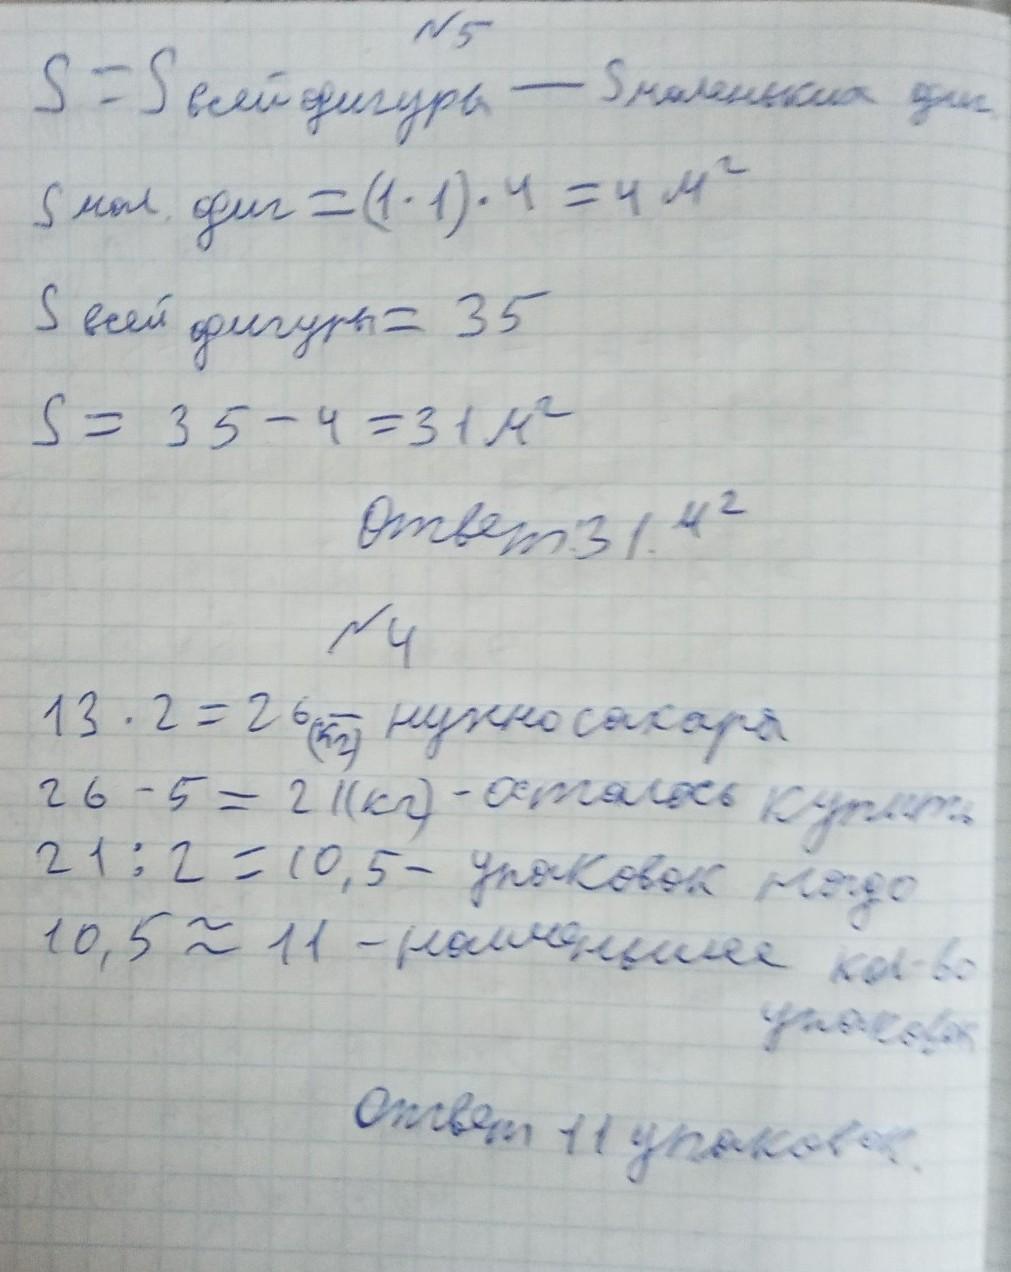 №5
S = S всей фигуры — S маленьких фиг.
S мал. фиг = (1·1)·4 = 4 м²
S всей фигуры = 35
S = 35 - 4 = 31 м²
Ответ: 31 м²
№4
13 · 2 = 26 (кг) – нужно сахара
26 - 5 = 21(кг) - осталось купить
21 : 2 = 10,5 – упаковок надо
10,5 ≈ 11 – наименьшее кол-во
упаковок
Ответ 11 упаковок.